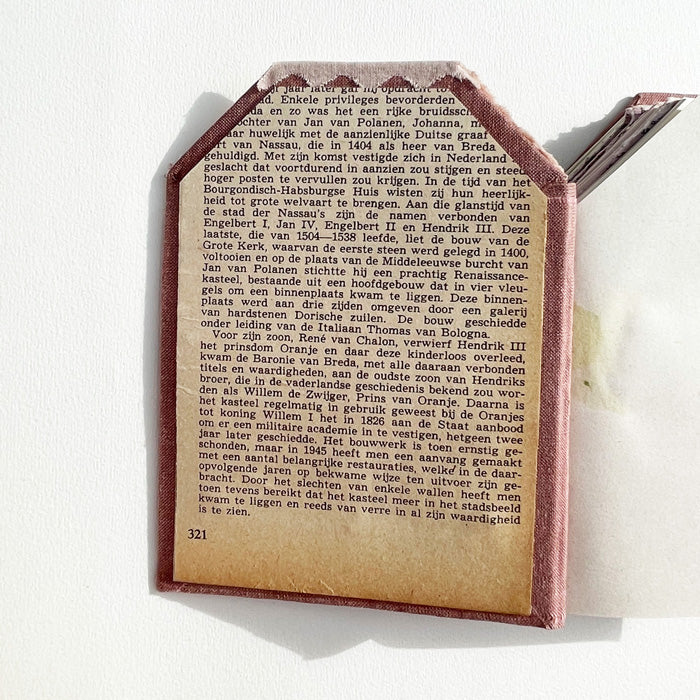 jaar later gaf hij opdracht to
nd. Enkele privileges bevorderden
da en zo was het een rijke bruidssch
chter van Jan van Polanen, Johanna, m
aar huwelijk met de aanzienlijke Duitse graaf
rt van Nassau, die in 1404 als heer van Breda
gehuldigd. Met zijn komst vestigde zich in Nederland
geslacht dat voortdurend in aanzien zou stijgen en steeds
hoger posten te vervullen zou krijgen. In de tijd van het
Bourgondisch-Habsburgse Huis wisten zij hun heerlijk-
heid tot grote welvaart te brengen. Aan die glanstijd van
de stad der Nassau's zijn de namen verbonden van
Engelbert I, Jan IV, Engelbert II en Hendrik III. Deze
laatste, die van 1504—1538 leefde, liet de bouw van de
Grote Kerk, waarvan de eerste steen werd gelegd in 1400,
voltooien en op de plaats van de Middeleeuwse burcht van
Jan van Polanen stichtte hij een prachtig Renaissance-
kasteel, bestaande uit een hoofdgebouw dat in vier vleu-
gels om een binnenplaats kwam te liggen. Deze binnen-
plaats werd aan drie zijden omgeven door een galerij
van hardstenen Dorische zuilen. De bouw geschiedde
onder leiding van de Italiaan Thomas van Bologna.
Voor zijn zoon, René van Chalon, verwierf Hendrik III
het prinsdom Oranje en daar deze kinderloos overleed,
kwam de Baronie van Breda, met alle daaraan verbonden
titels en waardigheden, aan de oudste zoon van Hendriks
broer, die in de vaderlandse geschiedenis bekend zou wor-
den als Willem de Zwijger, Prins van Oranje. Daarna is
het kasteel regelmatig in gebruik geweest bij de Oranjes
tot koning Willem I het in 1826 aan de Staat aanbood
om er een militaire academie in te vestigen, hetgeen twee
jaar later geschiedde. Het bouwwerk is toen ernstig ge-
schonden, maar in 1945 heeft men een aanvang gemaakt
met een aantal belangrijke restauraties, welke in de daar-
opvolgende jaren op bekwame wijze ten uitvoer zijn ge-
bracht. Door het slechten van enkele wallen heeft men
toen tevens bereikt dat het kasteel meer in het stadsbeeld
kwam te liggen en reeds van verre in al zijn waardigheid
is te zien.
321